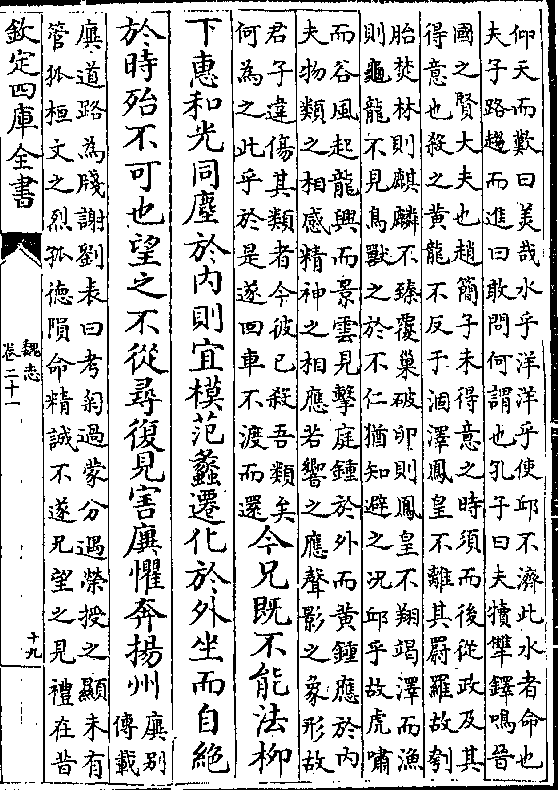 仰天而歎曰美哉水乎洋洋乎使邱不濟此水者命也
夫子路趨而進曰敢問何謂也孔子曰夫犢犨鐸鳴晉
國之賢大夫也趙簡子未得意之時須而後從政及其
得意也殺之黄龍不反于涸澤鳳皇不離其罻羅故刳
胎焚林則麒麟不臻覆巢破卵則鳳皇不翔竭澤而漁
則龜龍不見鳥獸之於不仁猶知避之况邱乎故虎嘯
而谷風起龍興而景雲見擊庭鍾於外而黄鍾應於内
夫物類之相感精神之相應若響之應聲影之象形故
君子違傷其類者今彼已殺吾類矣
何為之此乎於是遂回車不渡而還
今兄既不能法柳
下惠和光同塵於内則宜模范蠡遷化於外坐而自絶
於時殆不可也望之不從尋復見害廙懼奔揚州
廙别
傳載
廙道路為牋謝劉表曰考匊過蒙分遇榮授之顯未有
管狐桓文之烈孤德隕命精誠不遂兄望之見禮在昔
欽定四庫全書
魏志
卷二十一
十九